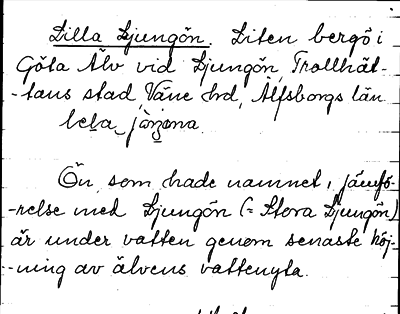 Lilla Ljungön. Liten bergö i
Göta Älv vid Ljungön, Trollhät-
-tans stad, Väne hd, Älfsborgs län
Ön, som hade namnet i jämfö-
-relse med Ljungön (= Stora Ljungön)
är under vatten genom senaste höj-
-ning av älvens vattenyta.